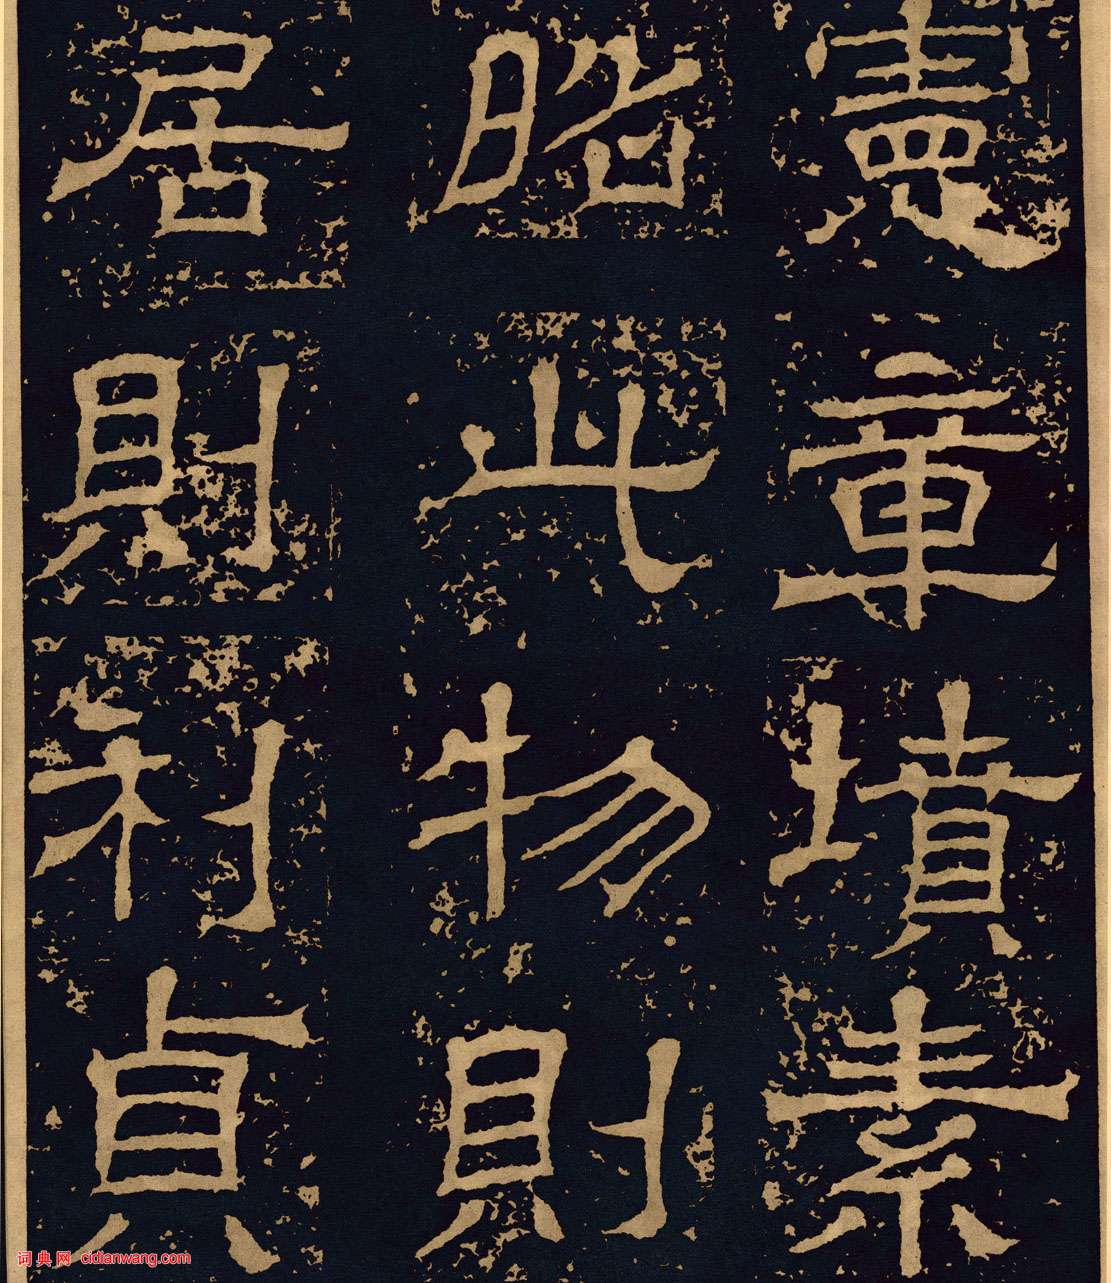 憲章墳素
昭此物則
居則利貞
词典网 cidianwang.com